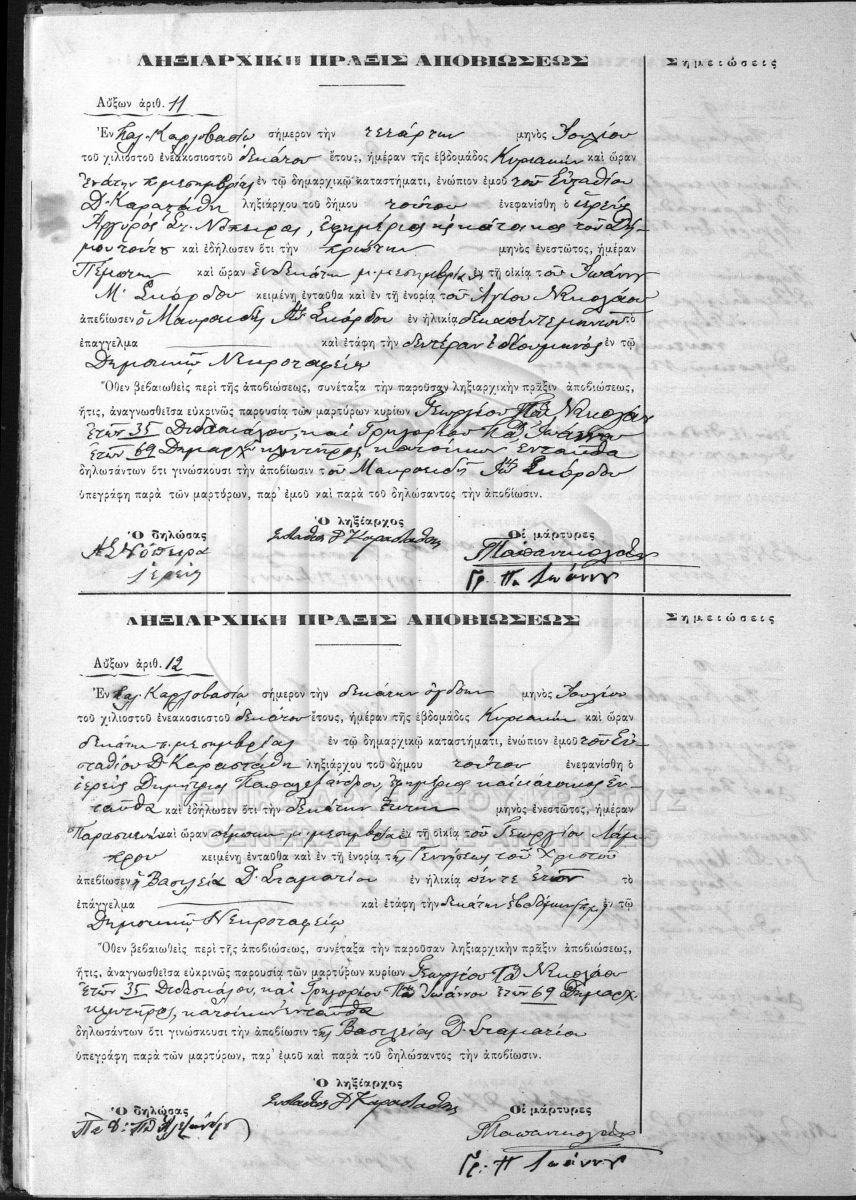 ΛΗΞΙΑΡΧΙΚΗ ΠΡΑΞΙΣ ΑΠΟΒΙΩΣΕΩΣ
Σημειώσεις
Αὔξων ἀριθ. 11
Ἐν Καρλοβασίῳ σήμερον τὴν τετάρτην μηνὸς Ἰουλίου
τοῦ χιλιοστοῦ ἐνεακοσιοστοῦ δεκάτου ἔτους, ἡμέραν τῆς ἑβδομάδος Κυριακὴν καὶ ὥραν
ἐνάτην π. μεσημβρίας ἐν τῷ δημαρχικῷ καταστήματι, ἐνώπιον ἐμοῦ τοῦ Εὐσταθίου
Δ. Καραστάθη ληξιάρχου τοῦ δήμου τούτου ἐνεφανίσθη ὁ ἱερεὺς
Ἀργυρὸς ἐφημέριος κάτοικος τοῦ Δή-
μου τούτου καὶ ἐδήλωσεν ὅτι τὴν πρώτην μηνὸς ἐνεστῶτος, ἡμέραν
Πέμπτην καὶ ὥραν ἑνδεκάτην μ. μεσημβρίαν ἐν τῇ οἰκίᾳ τοῦ Ἰωάννου
Μ. Σκόρδου κειμένῃ ἐνταῦθα καὶ ἐν τῇ ἐνορίᾳ τοῦ Ἁγίου Νικολάου
ἀπεβίωσεν ὁ Μαυροειδὴς Σκόρδου ἐν ἡλικίᾳ τὸ
ἐπάγγελμα καὶ ἐτάφη τὴν δευτέραν ἰδίου μηνὸς ἐν τῷ
Δημοτικῷ Νεκροταφείῳ
Ὅθεν βεβαιωθεὶς περὶ τῆς ἀποβιώσεως, συνέταξα τὴν παροῦσαν ληξιαρχικὴν πρᾶξιν ἀποβιώσεως,
ἥτις, ἀναγνωσθεῖσα εὐκρινῶς παρουσίᾳ τῶν μαρτύρων κυρίων Γεωργίου Πα Νικολάου
ἐτῶν 35 Διδασκάλου, καὶ Γρηγορίου Πα Ἰωάννου
ἐτῶν 69 Δημαρχ. κλητῆρος, κατοίκων ἐνταῦθα
δηλωσάντων ὅτι γινώσκουσι τὴν ἀποβίωσιν τοῦ Μαυροειδῆ Σκόρδου
ὑπεγράφη παρὰ τῶν μαρτύρων, παρ' ἐμοῦ καὶ παρὰ τοῦ δηλώσαντος τὴν ἀποβίωσιν.
Ὁ δηλώσας
Ὁ ληξίαρχος
Οἱ μάρτυρες
Ἱερεὺς
Εὐσταθ. Δ. Καραστάθης
Γ. Παπανικολάου
Γρ. Πα Ἰωάννου
ΛΗΞΙΑΡΧΙΚΗ ΠΡΑΞΙΣ ΑΠΟΒΙΩΣΕΩΣ
Σημειώσεις
Αὔξων ἀριθ. 12
Ἐν Καρλοβασίῳ σήμερον τὴν δεκάτην ὀγδόην μηνὸς Ἰουλίου
τοῦ χιλιοστοῦ ἐνεακοσιοστοῦ δεκάτου ἔτους, ἡμέραν τῆς ἑβδομάδος Κυριακὴν καὶ ὥραν
δεκάτην π. μεσημβρίας ἐν τῷ δημαρχικῷ καταστήματι, ἐνώπιον ἐμοῦ τοῦ Εὐ-
σταθίου Δ. Καραστάθη ληξιάρχου τοῦ δήμου τούτου ἐνεφανίσθη ὁ
ἱερεὺς Δημήτριος Παπαλεξάνδρου, ἐφημέριος καὶ κάτοικος ἐν-
ταῦθα καὶ ἐδήλωσεν ὅτι τὴν δεκάτην ἕκτην μηνὸς ἐνεστῶτος, ἡμέραν
Παρασκευὴν καὶ ὥραν πέμπτην μ. μεσημβρίαν ἐν τῇ οἰκίᾳ τοῦ Γεωργίου Λάμ-
πρου κειμένῃ ἐνταῦθα καὶ ἐν τῇ ἐνορίᾳ τῆς Γεννήσεως τοῦ Χριστοῦ
ἀπεβίωσεν ἡ Βασιλεία Δ. Σταματίου ἐν ἡλικίᾳ πέντε ἐτῶν τὸ
ἐπάγγελμα καὶ ἐτάφη τὴν δεκάτην ἑβδόμην ἐν τῷ
Δημοτικῷ Νεκροταφείῳ
Ὅθεν βεβαιωθεὶς περὶ τῆς ἀποβιώσεως, συνέταξα τὴν παροῦσαν ληξιαρχικὴν πρᾶξιν ἀποβιώσεως,
ἥτις, ἀναγνωσθεῖσα εὐκρινῶς παρουσίᾳ τῶν μαρτύρων κυρίων Γεωργίου Πα Νικολάου
ἐτῶν 35 Διδασκάλου, καὶ Γρηγορίου Πα Ἰωάννου ἐτῶν 69 Δημαρχ.
κλητῆρος, κατοίκων ἐνταῦθα
δηλωσάντων ὅτι γινώσκουσι τὴν ἀποβίωσιν τῆς Βασιλείας Δ. Σταματίου
ὑπεγράφη παρὰ τῶν μαρτύρων, παρ' ἐμοῦ καὶ παρὰ τοῦ δηλώσαντος τὴν ἀποβίωσιν.
Ὁ δηλώσας
Ὁ ληξίαρχος
Οἱ μάρτυρες
Εὐσταθ. Δ. Καραστάθης
Γ. Παπανικολάου
Γρ. Π Ἰωάννου